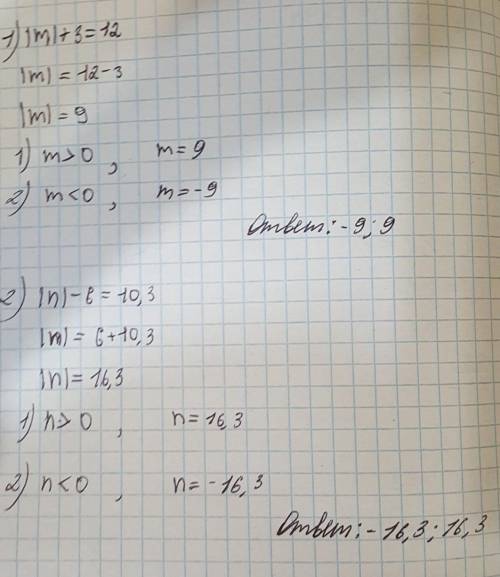 1) |m|+3=12
|m| = 12-3
|m| = 9
1) m>0, m=9
2) m<0, m=-9
Ответ: -9; 9
2) |n|-6=10,3
|m|= 6+10,3
|n|=16,3
1) n>0, n=16,3
2) n<0, n=-16,3
Ответ: -16,3; 16,3